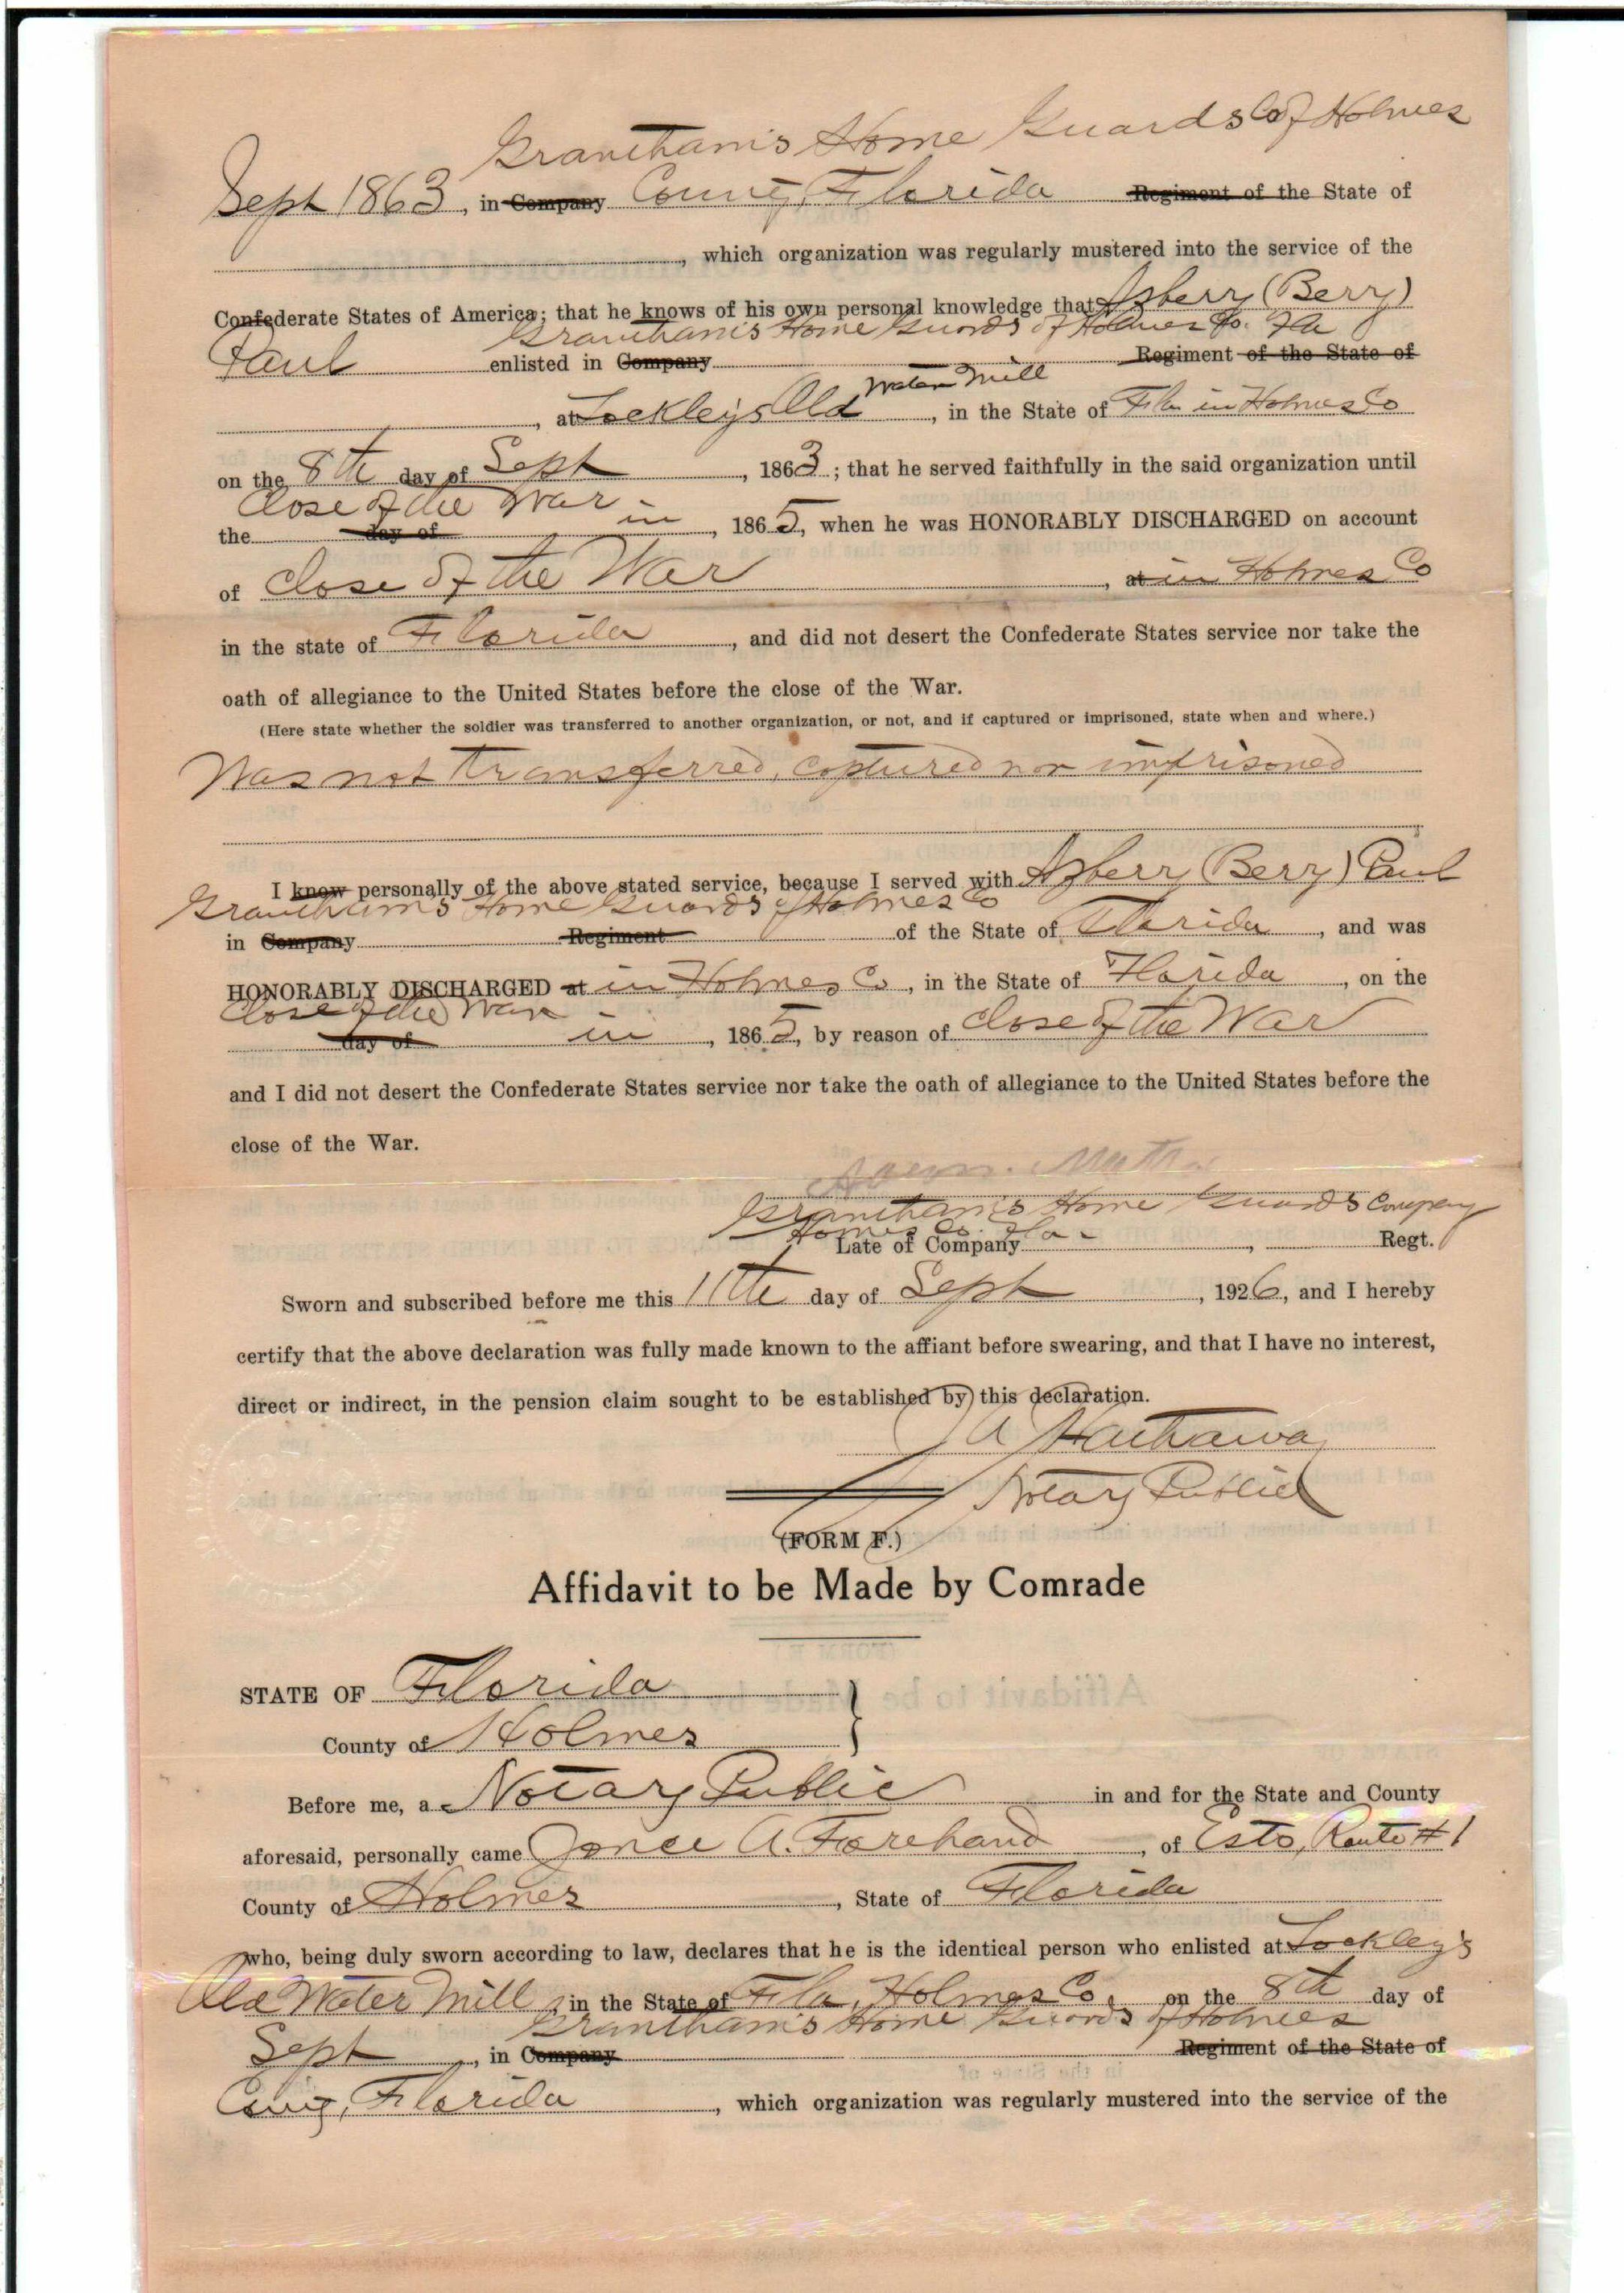 Grantham's Home Guards Co of Holmes
Sept 1863, in Company County, Florida Regiment of the State of
, which organization was regularly mustered into the service of the
Confederate States of America; that he knows of his own personal knowledge that Asberry (Berry)
Grantham's Home Guards of Holmes Co. Fla
Paul enlisted in Company Regiment of the State of
Water Mill
, at Lockleys Old , in the State of Fla in Holmes Co
on the 8th day of Sept , 1863; that he served faithfully in the said organization until
Close of the War
the day of in , 1865, when he was HONORABLY DISCHARGED on account
of Close of the War , at in Holmes Co
in the state of Florida , and did not desert the Confederate States service nor take the
oath of allegiance to the United States before the close of the War.
(Here state whether the soldier was transferred to another organization, or not, and if captured or imprisoned, state when and where.)
Was not transferred, captured nor imprisoned
I know personally of the above stated service, because I served with Asberry (Berry) Paul
Grantham's Home Guards of Holmes Co
in Company Regiment of the State of Florida , and was
HONORABLY DISCHARGED at in Holmes Co , in the State of Florida , on the
Close of the War
day of in , 1865, by reason of Close of the War
and I did not desert the Confederate States service nor take the oath of allegiance to the United States before the
close of the War.
Grantham's Home Guards Company
Homes Co. Fla-
Late of Company , Regt.
Sworn and subscribed before me this 11th day of Sept , 1926, and I hereby
certify that the above declaration was fully made known to the affiant before swearing, and that I have no interest,
direct or indirect, in the pension claim sought to be established by this declaration.
Notary Public
(FORM F.)
Affidavit to be Made by Comrade
STATE OF Florida
County of Holmes
Before me, a Notary Public in and for the State and County
aforesaid, personally came Jonce A. Forehand , of Esto, Route #1
County of Holmes , State of Florida
who, being duly sworn according to law, declares that he is the identical person who enlisted at Lockley's
Old Water Mill , in the State of Fla, Holmes Co, on the 8th day of
Grantham's Home Guards of Holmes
Sept , in Company Regiment of the State of
County, Florida , which organization was regularly mustered into the service of the